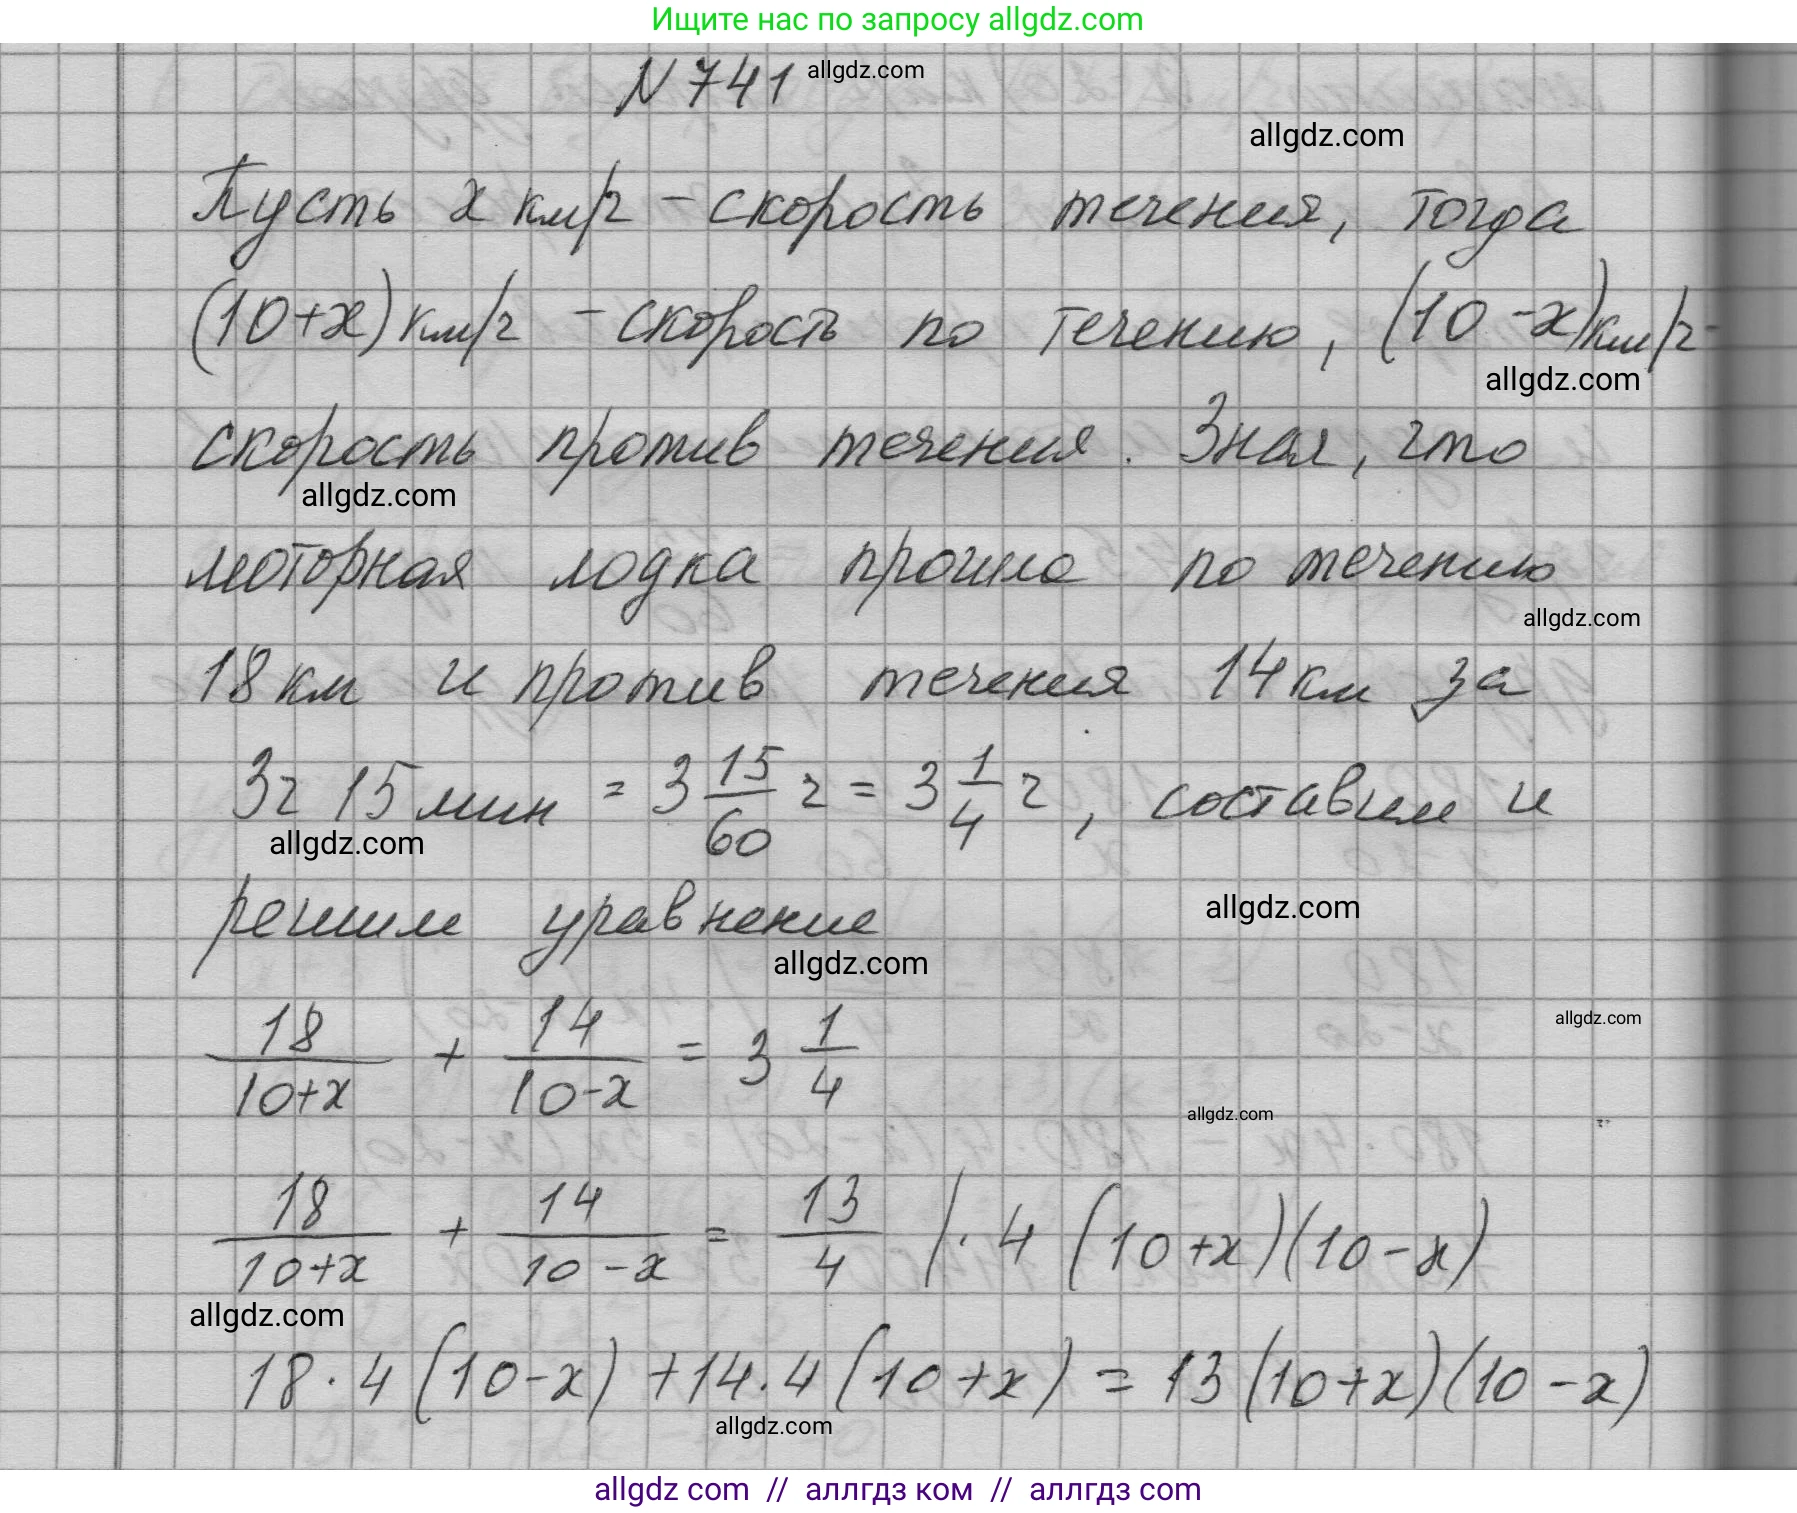 Ищите нас по запросу allgdz.com
N 741 allgdz.com
allgdz.com
Пусть x км/ч - скорость течения, тогда
(10+x) км/ч - скорость по течению, (10-x) км/ч -
allgdz.com
скорость против течения. Зная, что
allgdz.com
моторная лодка прошла по течению
allgdz.com
18 км и против течения 14 км за
3ч 15 мин = 3 15/60 ч = 3 1/4 ч, составим и
allgdz.com
решим уравнение
allgdz.com
allgdz.com
18/(10+x) + 14/(10-x) = 3 1/4
allgdz.com
allgdz.com
18/(10+x) + 14/(10-x) = 13/4 | · 4 (10+x)(10-x)
allgdz.com
18 · 4 (10-x) + 14 · 4 (10+x) = 13 (10+x)(10-x)
allgdz.com
allgdz com // аллгдз ком // аллгдз com